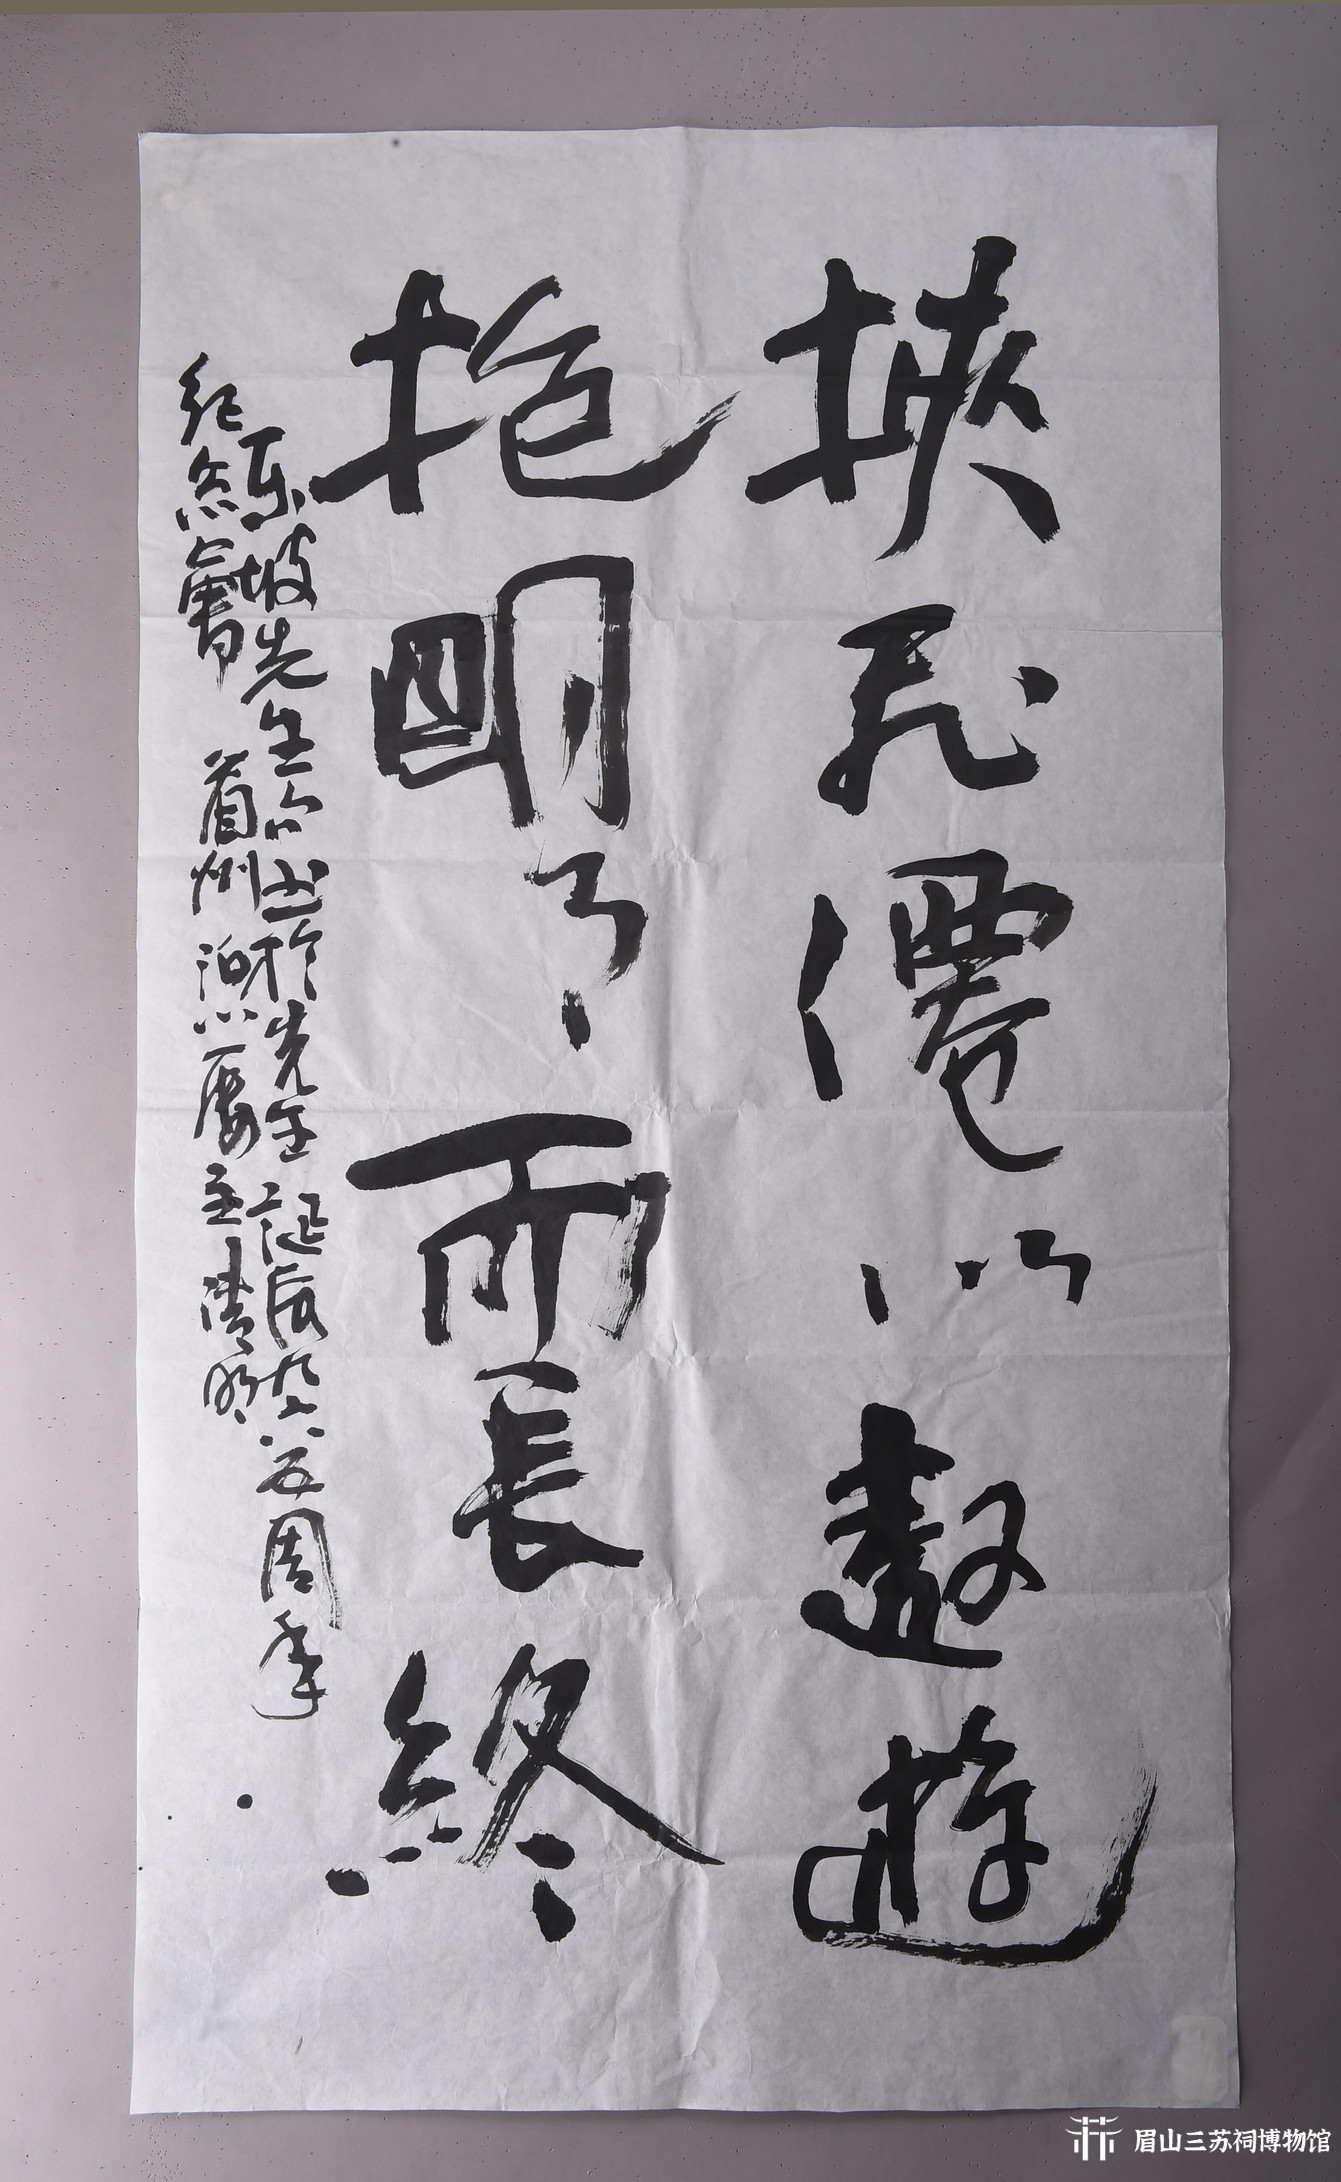 挾飛僊以遨遊
抱明月而長終
東坡先生句書於先生誕辰九六五周年
紀念會 眉州 清明
眉山三苏祠博物馆